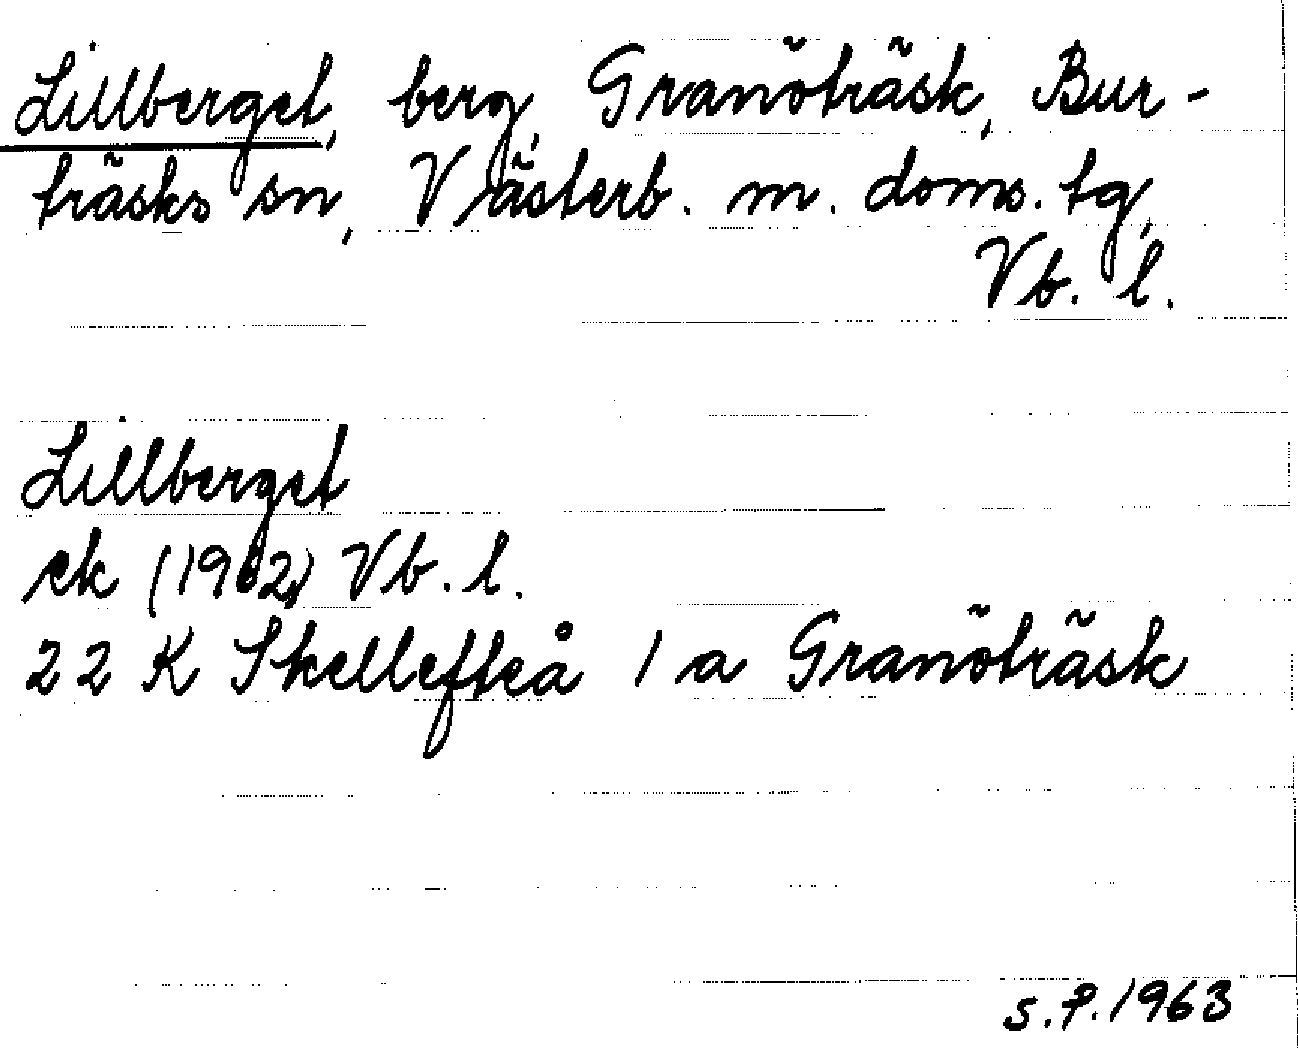 Lillberget, berg, Granöträsk, Bur-
träsks sn, Västerb. m. doms. tg,
Vb. l.
Lillberget
ek (1962) Vb. l.
22 K Skellefteå 1 a Granöträsk
S.P. 1963